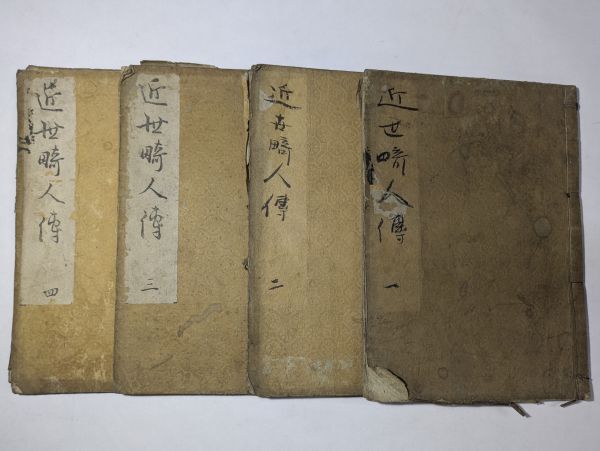 近世畸人傳 一
近世畸人傳 二
近世畸人傳 三
近世畸人傳 四